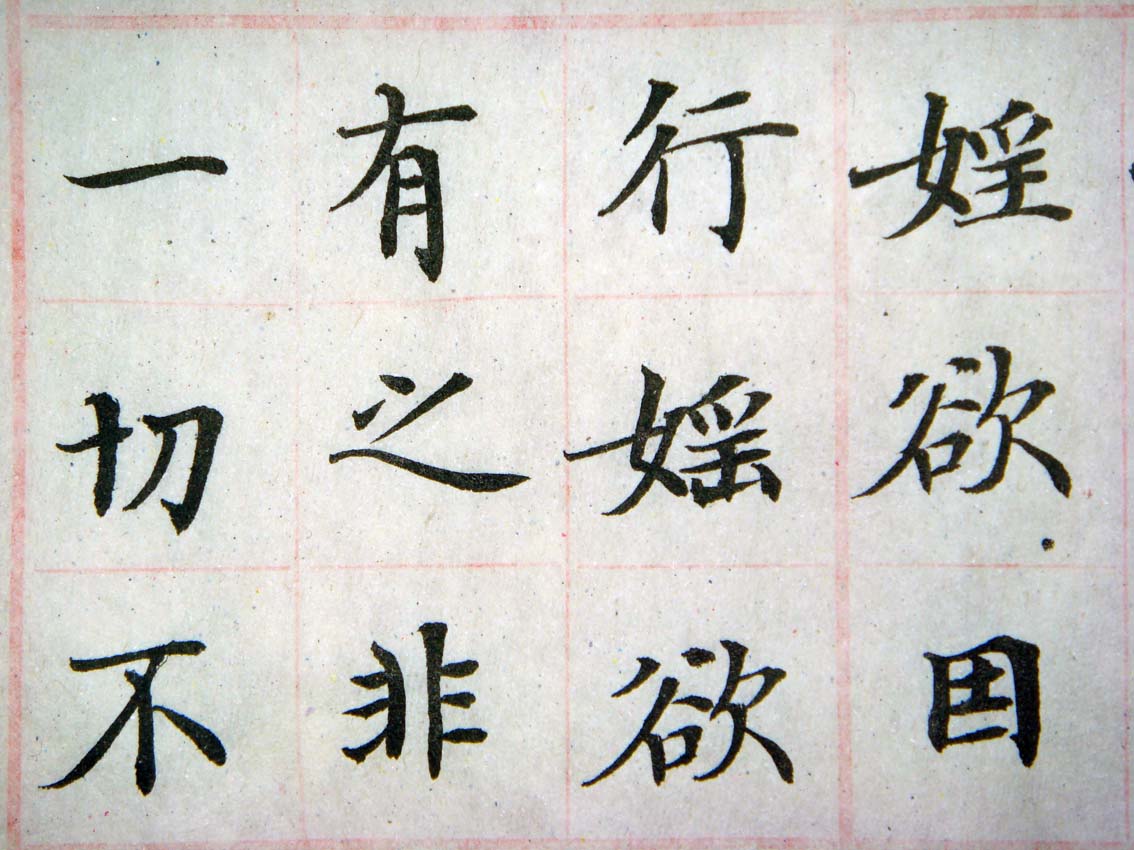 婬欲因
行媱欲
有之非
一切不